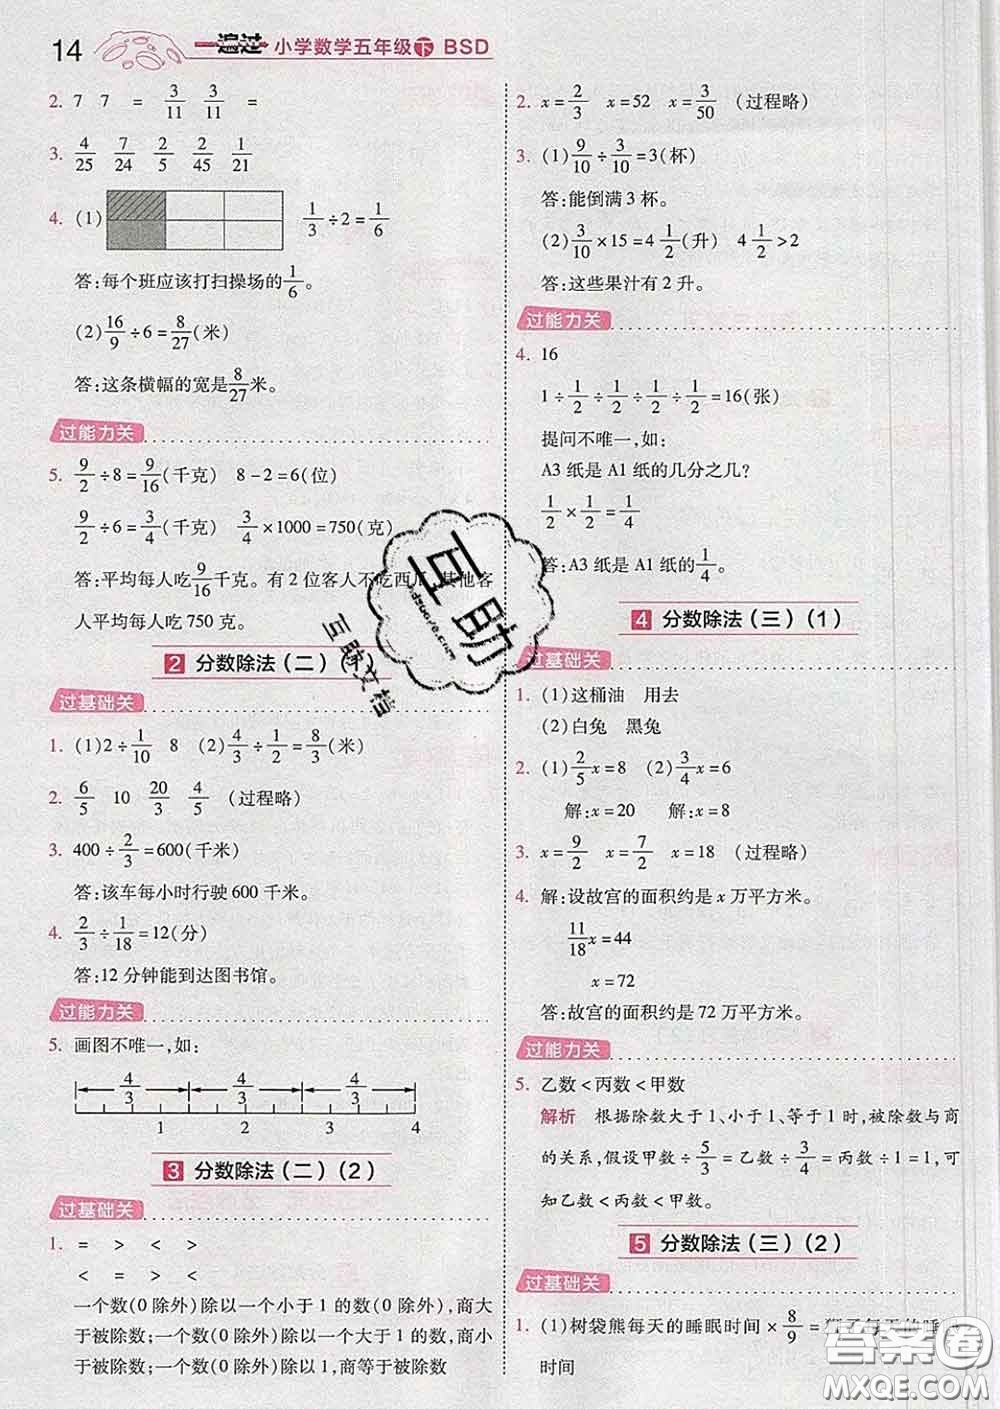 14 一遍过 小学数学五年级下 BSD
2. 7 7 = 3/11 3/11 =
3. 4/25 7/24 2/5 2/45 1/21
4. (1) 1/3÷2=1/6
答:每个班应该打扫操场的1/6。
(2)16/9÷6=8/27(米)
答:这条横幅的宽是8/27米。
过能力关
5. 9/2÷8=9/16(千克) 8-2=6(位)
9/2÷6=3/4(千克) 3/4×1000=750(克)
答:平均每人吃9/16千克。有2位客人不吃西瓜,其他客
人平均每人吃750克。
2 分数除法(二)
过基础关
1. (1)2÷1/10 8 (2)4/3÷1/2=8/3(米)
2. 6/5 10 20/3 4/5 (过程略)
3. 400÷2/3=600(千米)
答:该车每小时行驶600千米。
4. 2/3÷1/18=12(分)
答:12分钟能到达图书馆。
过能力关
5. 画图不唯一,如:
4/3 4/3 4/3
1 2 3 4
3 分数除法(二)(2)
过基础关
1. = > < >
< = > <
一个数(0除外)除以一个小于1的数(0除外),商大
于被除数;一个数(0除外)除以一个大于1的数,商小
于被除数;一个数(0除外)除以1,商等于被除数
2. x=2/3 x=52 x=3/50 (过程略)
3. (1)9/10÷3/10=3(杯)
答:能倒满3杯。
(2)3/10×15=4 1/2(升) 4 1/2>2
答:这些果汁有2升。
过能力关
4. 16
1÷1/2÷1/2÷1/2÷1/2=16(张)
提问不唯一,如:
A3纸是A1纸的几分之几?
1/2×1/2=1/4
答:A3纸是A1纸的1/4。
4 分数除法(三)(1)
过基础关
1. (1)这桶油 用去
(2)白兔 黑兔
2. (1)2/5x=8 (2)3/4x=6
解:x=20 解:x=8
3. x=9/2 x=7/2 x=18 (过程略)
4. 解:设故宫的面积约是x万平方米。
11/18x=44
x=72
答:故宫的面积约是72万平方米。
过能力关
5. 乙数<丙数<甲数
解析 根据除数大于1、小于1、等于1时,被除数与商
的关系,假设甲数÷5/3=乙数÷3/4=丙数÷1=1,可
知乙数<丙数<甲数。
5 分数除法(三)(2)
过基础关
1. (1)树袋熊每天的睡眠时间×8/9=狮子每天的睡眠
时间
互助
互助文档
答案圈
MXQE.COM